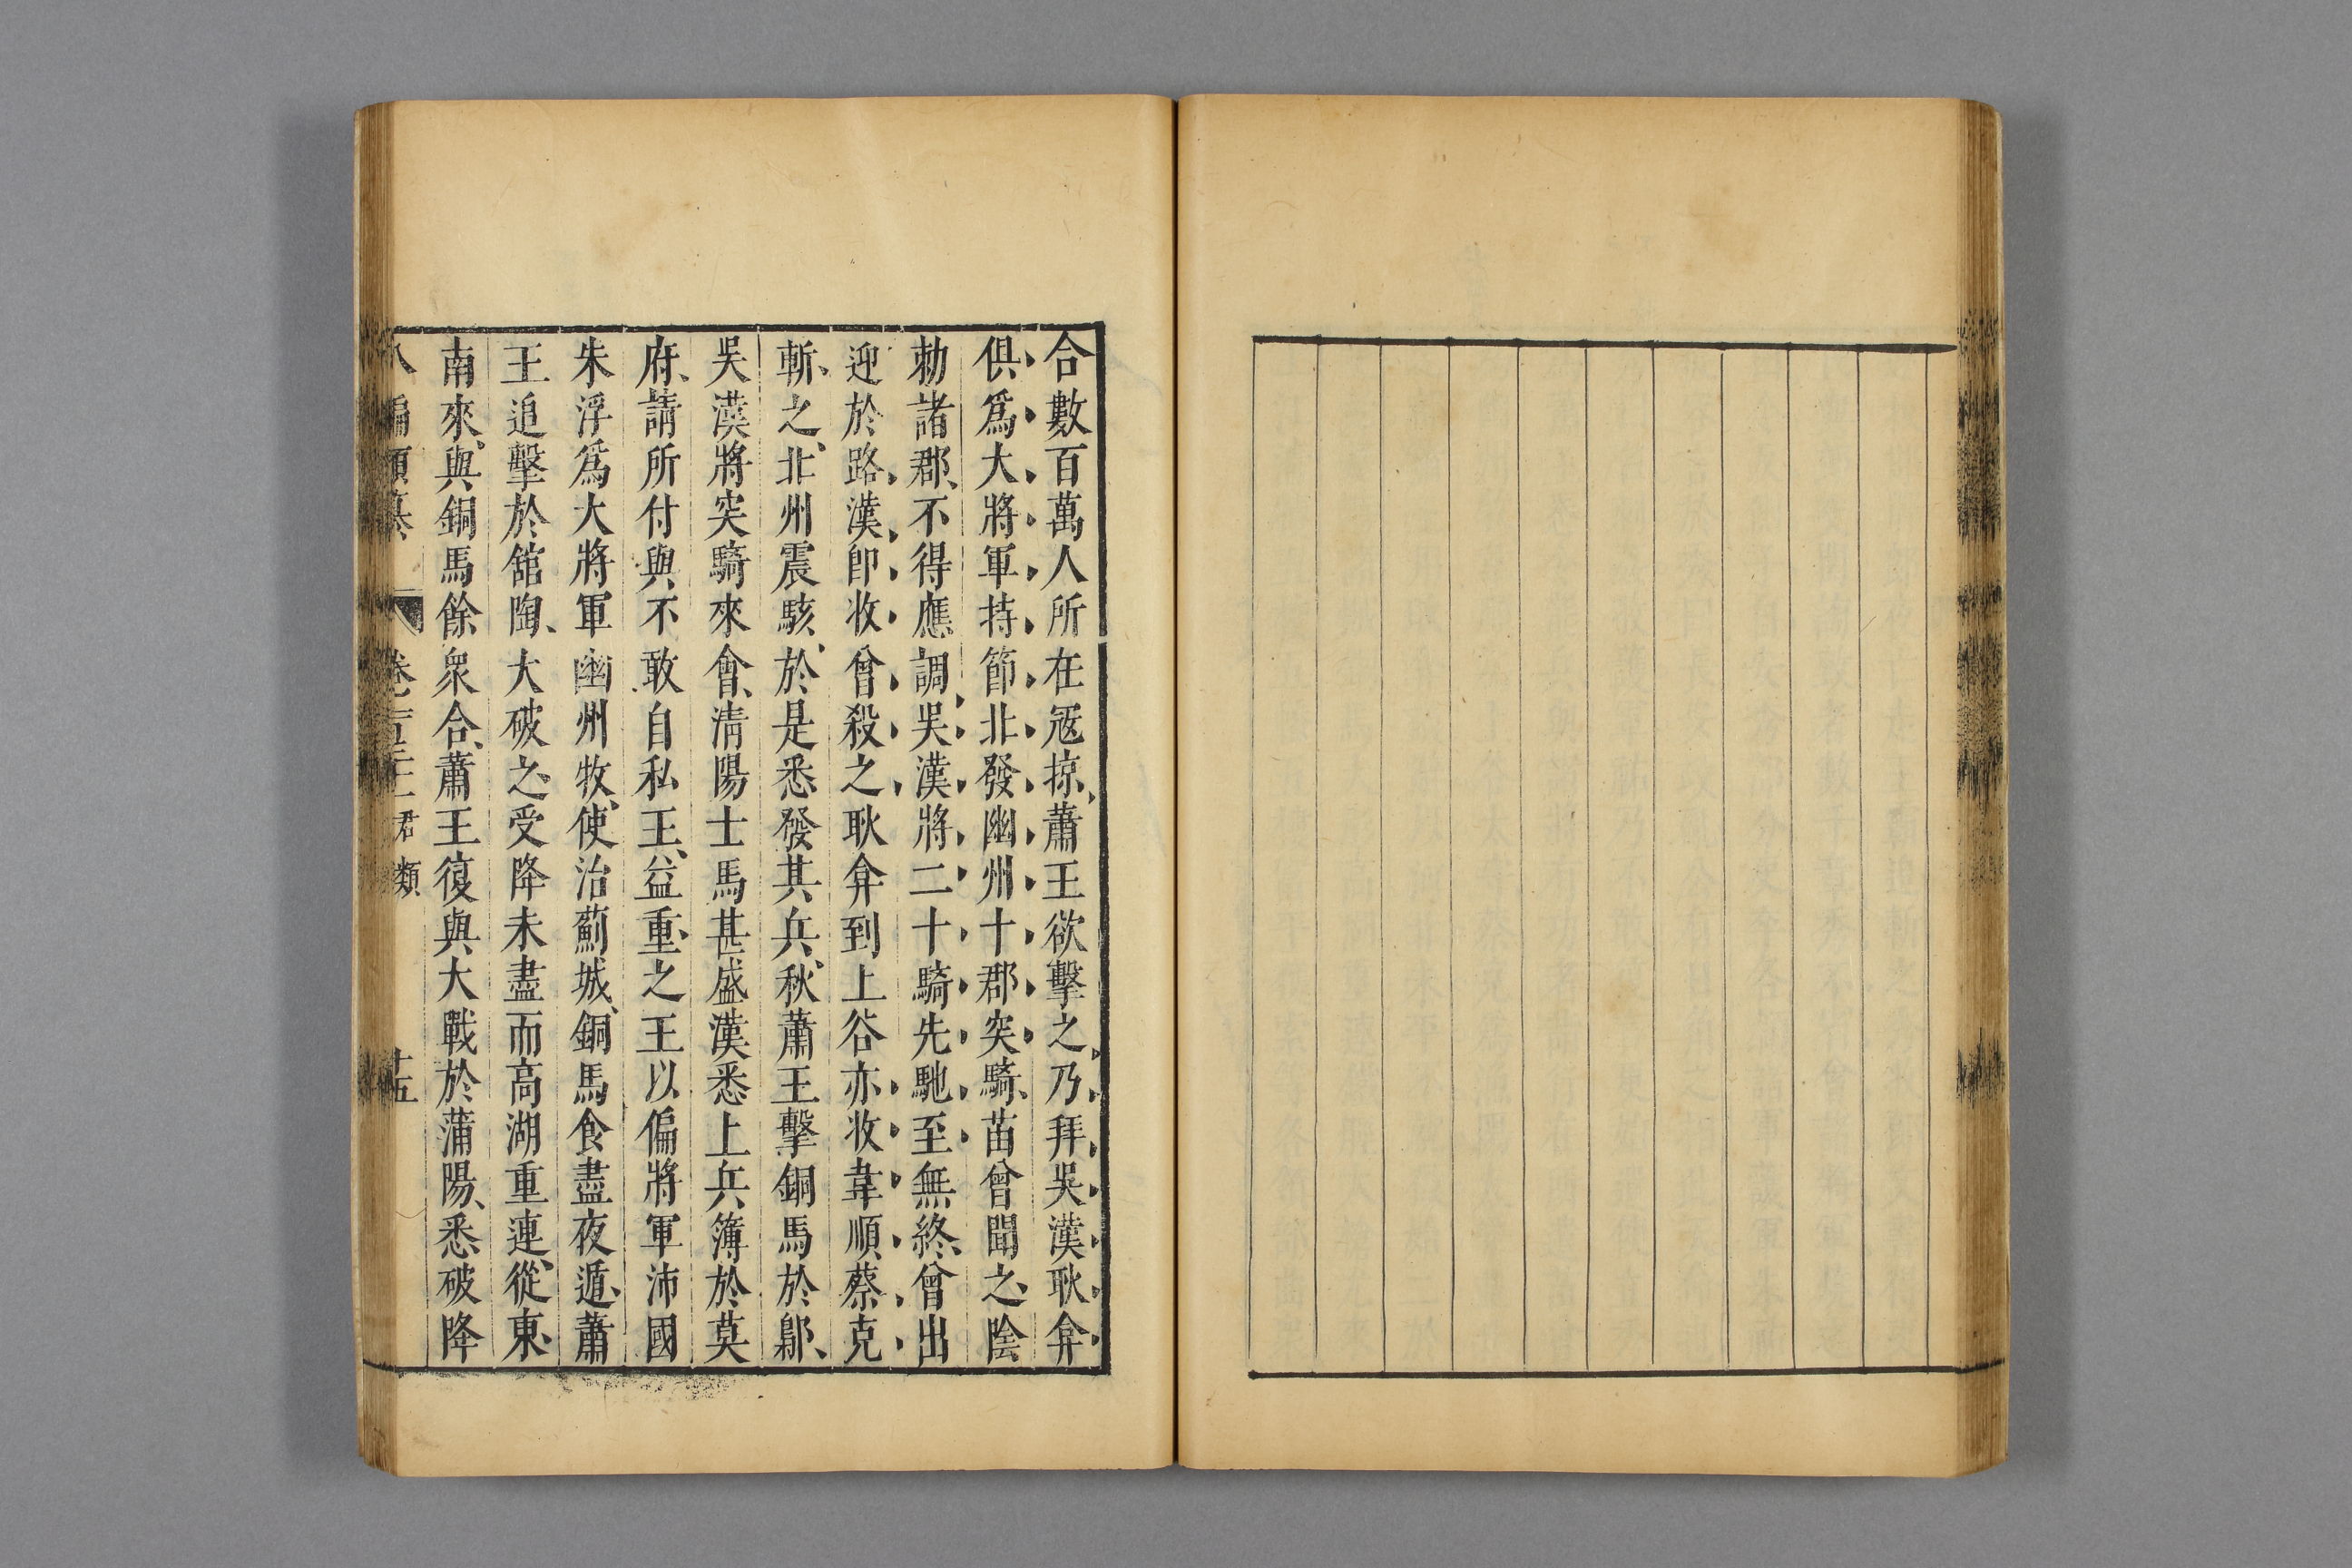 合數百萬人所在寇掠蕭王欲擊之乃拜吳漢耿弇
俱爲大將軍持節北發幽州十郡突騎苗曾聞之陰
勑諸郡不得應調吳漢將二十騎先馳至無終曾出
迎於路漢卽收曾殺之耿弇到上谷亦收韋順蔡克
斬之北州震駭於是悉發其兵秋蕭王擊銅馬於鄡
吳漢將突騎來會清陽士馬甚盛漢悉上兵簿於莫
府請所付與不敢自私王益重之王以偏將軍沛國
朱浮爲大將軍幽州牧使治薊城銅馬食盡夜遁蕭
王追擊於舘陶大破之受降未盡而高湖重連從東
南來與銅馬餘衆合蕭王復與大戰於蒲陽悉破降
君類 十五